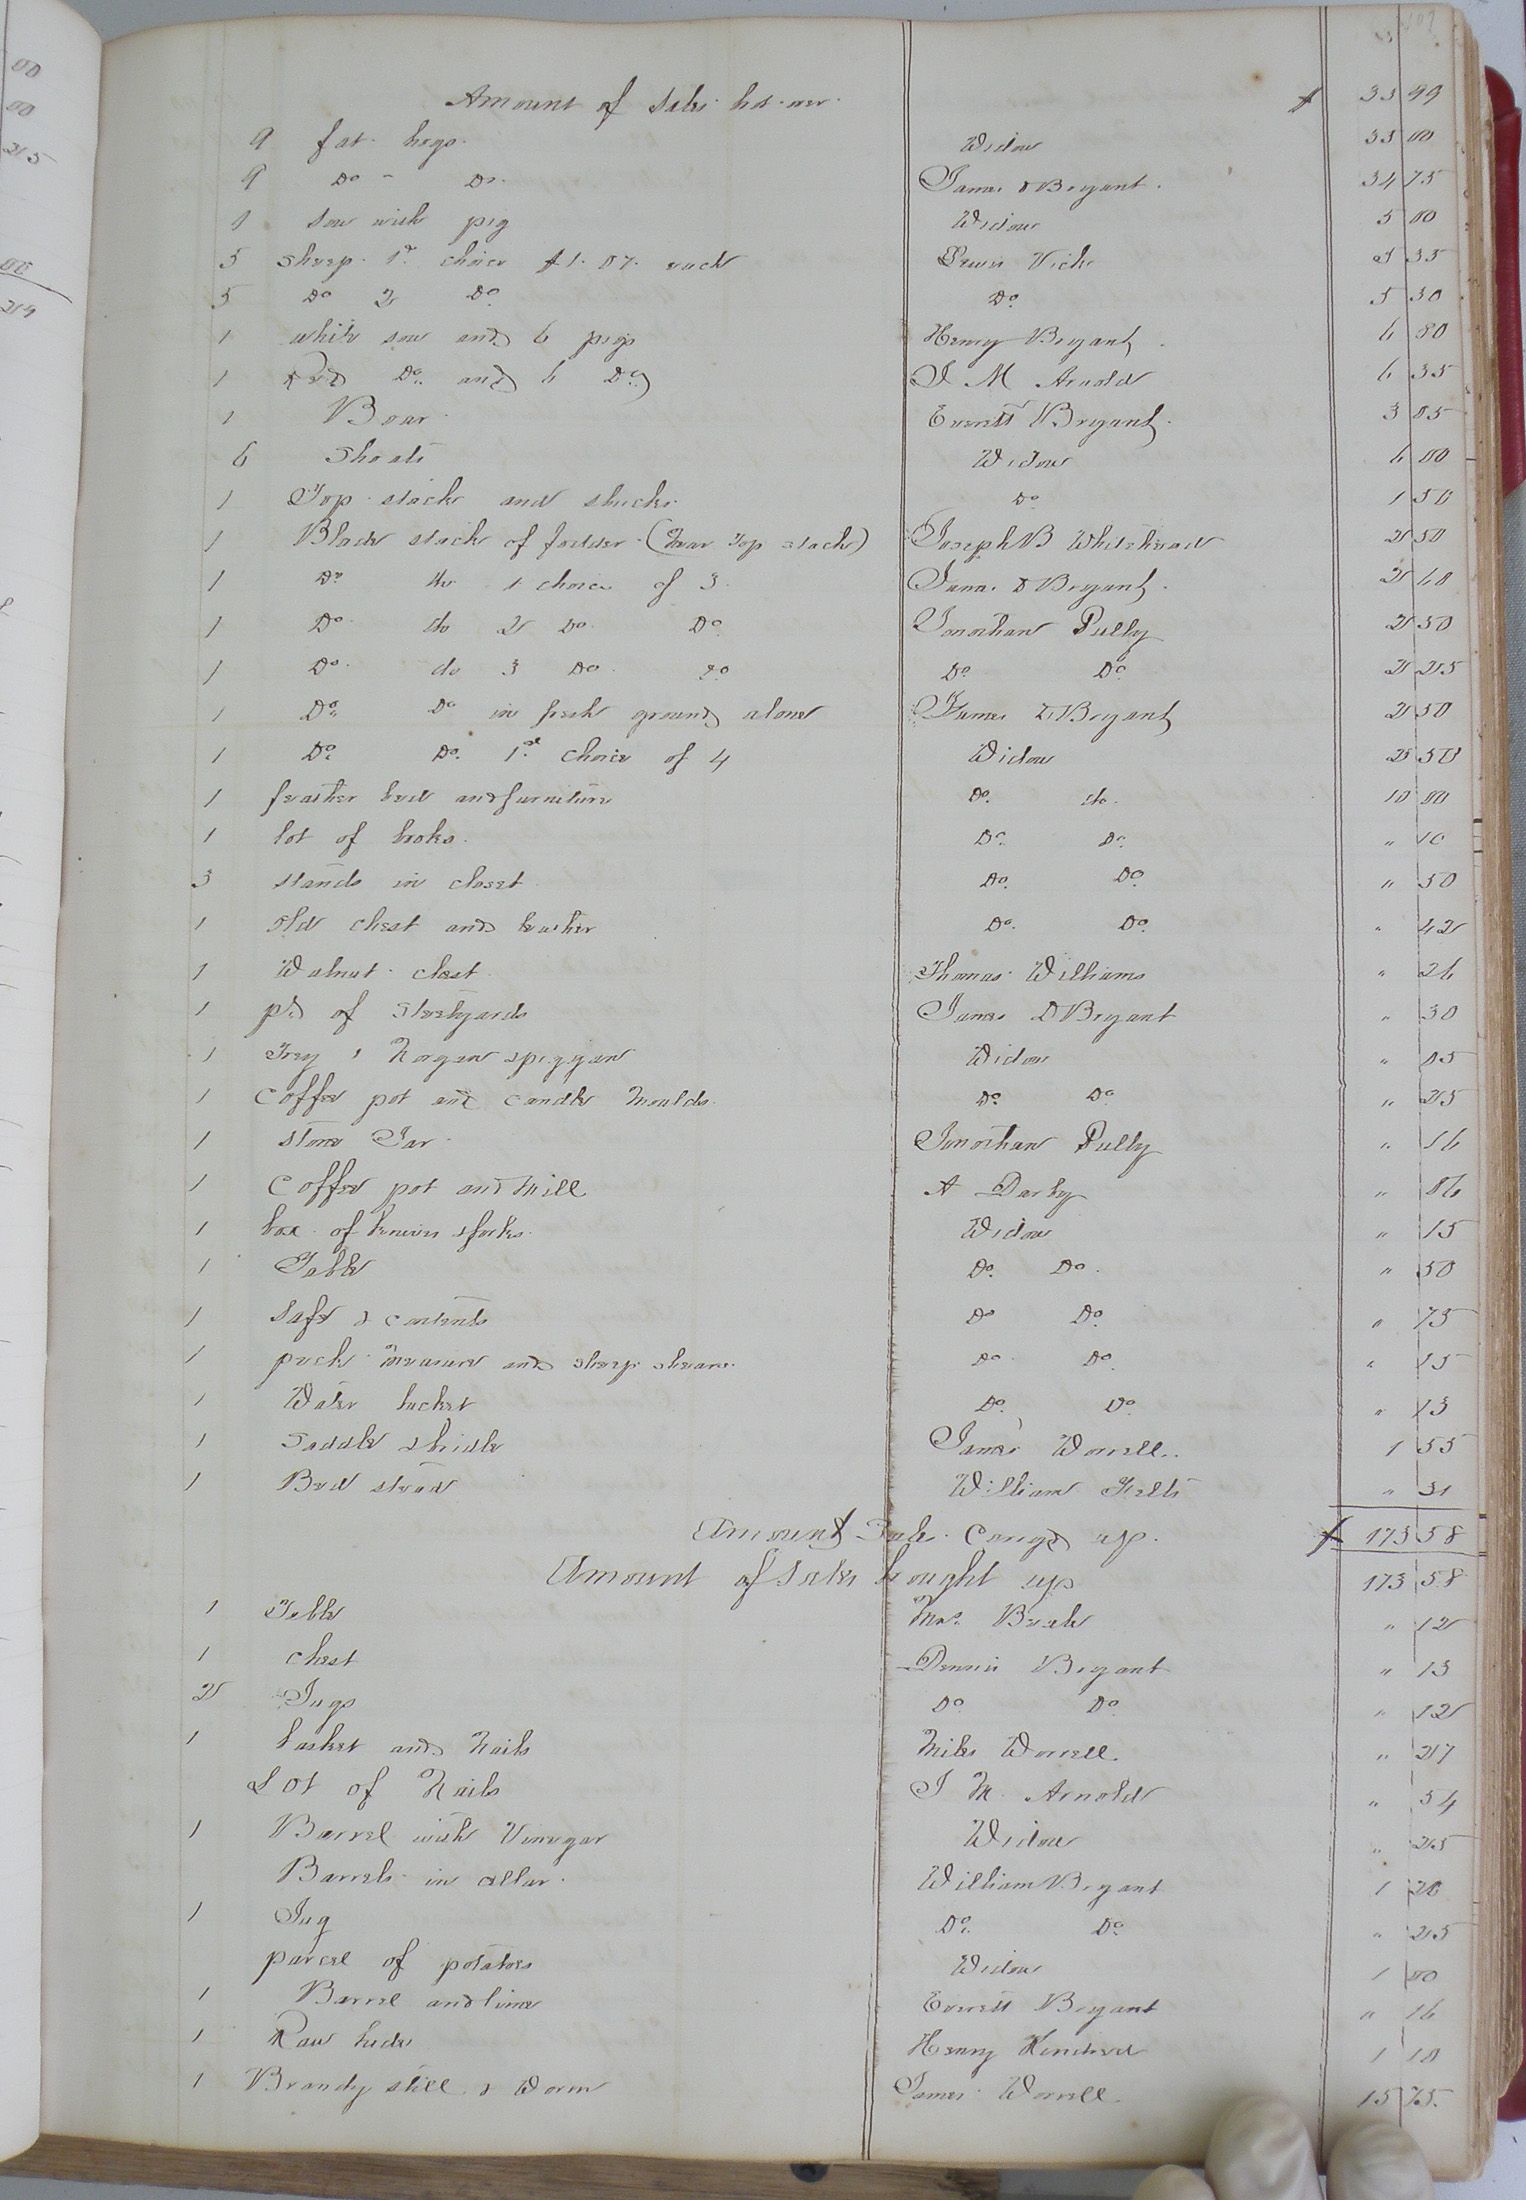 109
Amount of Sales bot. over $ 33 99
9 fat hogs. Widow 33 00
9 Do - Do. James D Bryant. 34 75
1 Sow with pig Widow 5 00
5 Sheep 1st choice $1.07 each Lewis Vick 5 35
5 Do 2 Do Do. 5 30
1 white sow and 6 pigs Henry Bryant 6 80
1 red Do. and 6 Do. J M Arnold 6 35
1 Boar Everett Bryant 3 05
6 Shoats Widow 6 00
1 Top stack and shucks Do 1 50
1 Blade stack of fodder (Near Top stack) Joseph B Whitehead 2 50
1 Do do 1 choice of 3 James D Bryant. 2 60
1 Do. do 2 Do. Do. Jonathan Pully 2 50
1 Do. do 3 Do. Do Do. Do. 2 25
1 Do. Do in fresh ground alone James D Bryant 2 50
1 Do. Do. 1st choice of 4 Widow 2 50
1 feather bed and furniture Do. do. 10 00
1 lot of books. Do. Do. " 10
3 stands in closet Do. Do. " 50
1 old chest and leather Do. Do. " 42
1 Walnut chest Thomas Williams " 26
1 pr. of Steelyards James D Bryant " 30
1 Trey & piggan Widow " 05
1 Coffee pot and Candle Moulds Do. Do " 25
1 Stone Jar Jonathan Pully " 16
1 Coffee pot and Mill A Darby " 06
1 box of knives & forks Widow " 15
1 Table Do. Do. " 50
1 Safe & contents Do Do. " 75
1 peck measure and sheep shears. Do. Do. " 15
1 Water bucket Do. Do. " 13
1 Saddle & bridle James Worrell. 1 55
1 Bed stead William Felts " 31
Amount Sales Carried up. $ 173 58
Amount of Sales brought up 173 58
1 Table Mrs. Beale " 12
1 chest Dennis Bryant " 13
2 Jugs Do. Do. " 12
1 basket and Nails Miles Worrell. " 27
Lot of Nails J M. Arnold " 54
1 Barrel with Vinegar Widow " 25
Barrels in cellar. William Bryant 1 20
1 Jug Do. Do. " 25
parcel of potatoes Widow 1 00
1 Barrel and lime Everett Bryant " 16
1 Raw hide Henry Kindred 1 10
1 Brandy still & Worm James Worrell. 15 75.